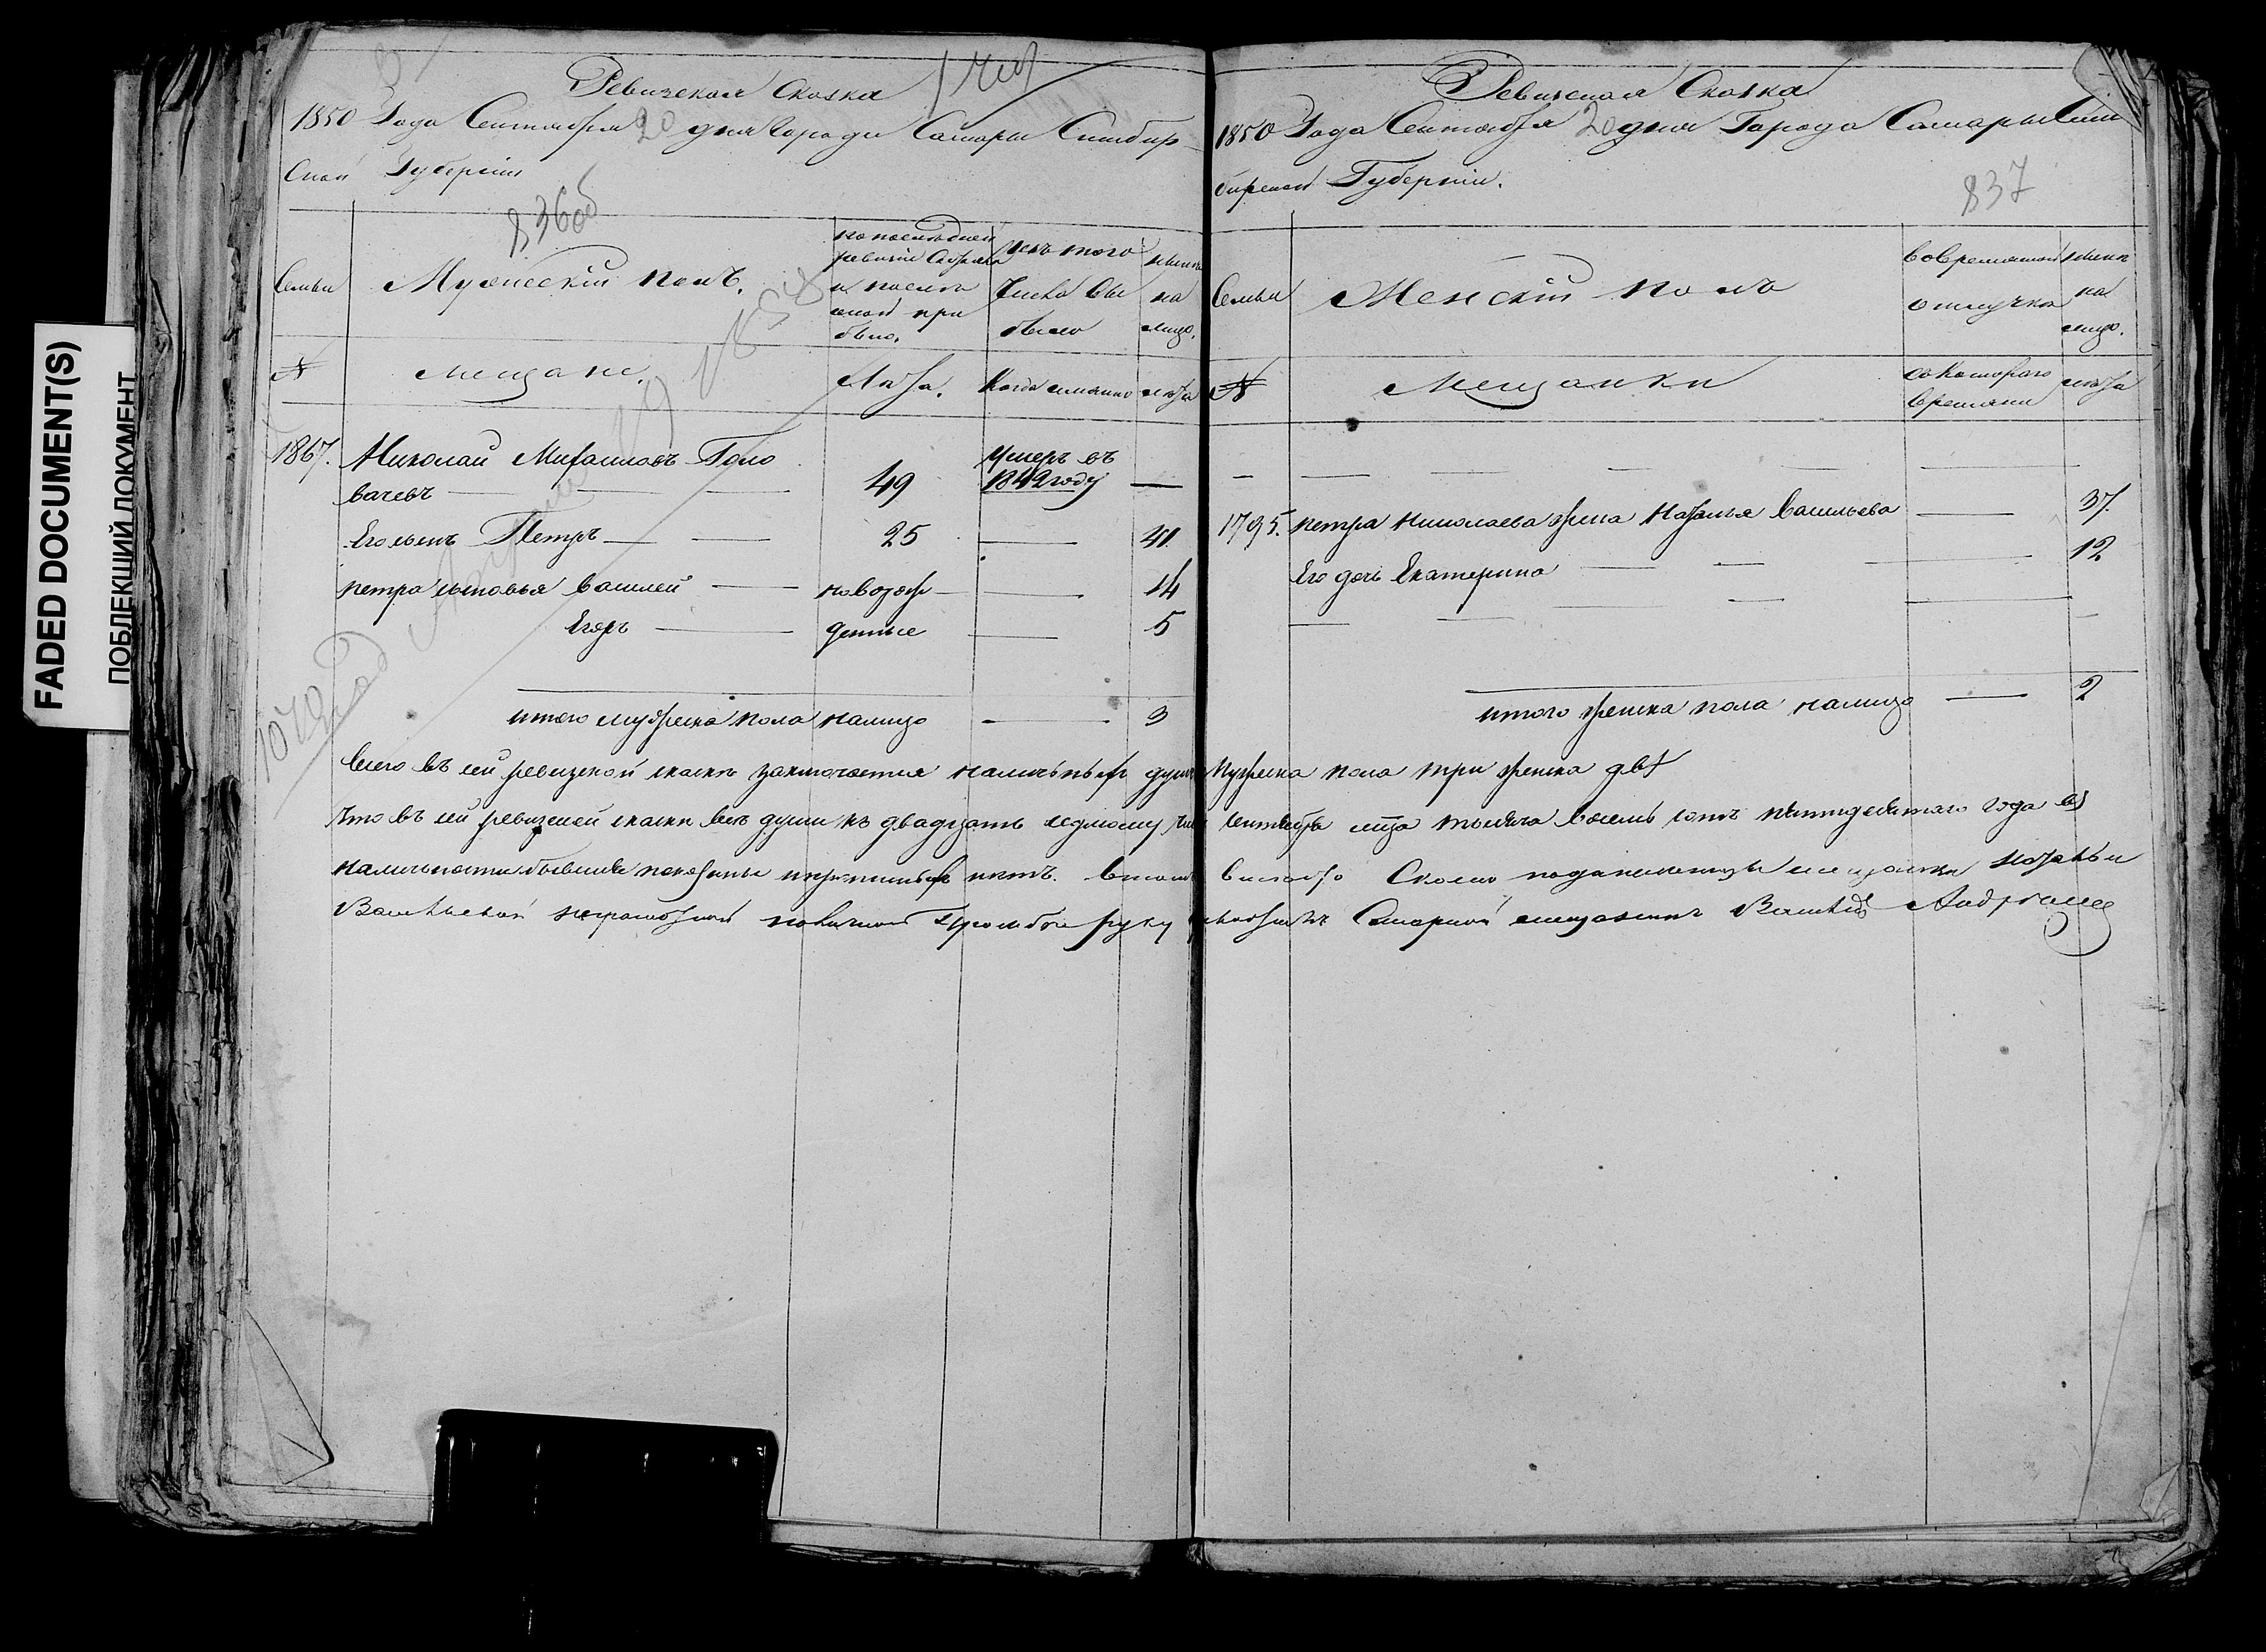 FADED DOCUMENT(S)
ПОБЛЕКШИЙ ДОКУМЕНТ
Ревизская Сказка
1850 Года Сентября 20 дня Города Самары Симбир-
ской Губернии
836об
Семьи
Мужескій полъ.
по последней ревизіи состояло и после оной при было.
изъ того числа вы было
ныне на лицо.
№
мещане.
Лѣта.
Когда имянно
лѣта
1867. Николай Михаиловъ Голо
вачевъ 49 Умеръ въ 1842 году
Его сынъ Петръ 25 41
Петра сыновья Василей новорож 14
Егоръ денные 5
итого мужеска пола налицо 3
Ревизская Сказка
1850 Года Сентября 20 дня Города Самары Сим
бирской Губерніи.
837
Семьи
Женскій полъ
во временной отлучке
ныне на лицо.
№
Мещанки
съ котораго времяни
лѣта
1795. Петра Николаева жена Наталья Васильева 37.
Его дочь Екатерина 12
итого женска пола налицо 2
Всего въ сей ревизской сказке заключается наличныхъ душъ мужеска пола три женска две
Что въ сей ревизской сказки все души къ двадцать седмому сентября мца тысяча восемь сотъ пятидесятаго года въ
наличности бывшие показаны и прописныхъ нетъ.
Васильевой неграмотной по личной прозьбе руку приложилъ Самарской мещанинъ